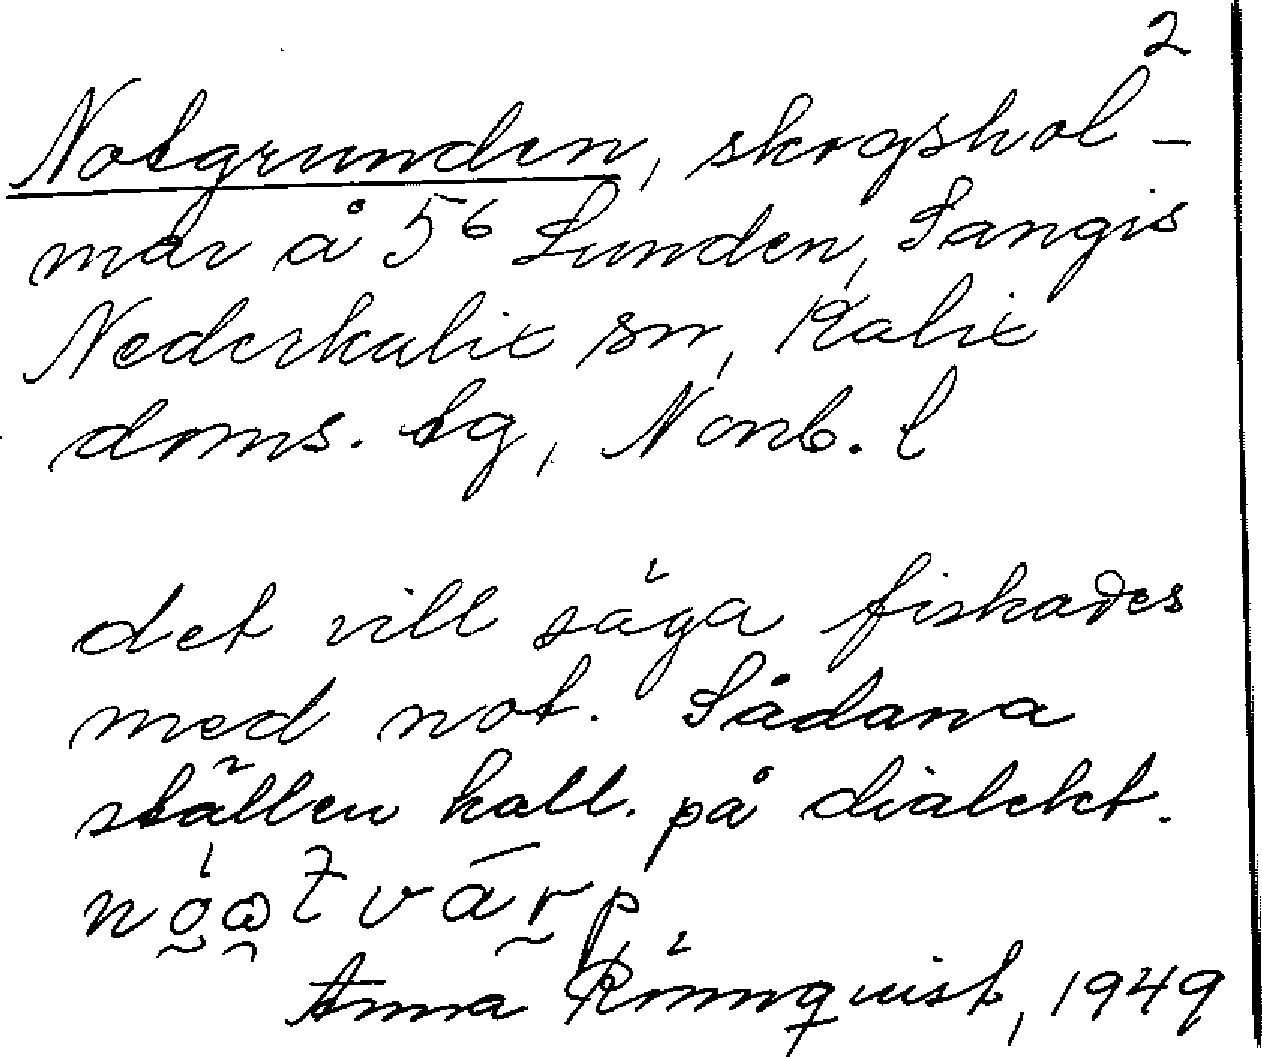 2
Notgrunden, skogshol-
mar å 5⁶ Lunden, Sangis
Nederkalix sn, Kalix
doms. tg, Norrb. l
det vill säga fiskades
med not. Sådana
ställen kall. på dialekt.
Anna Rönnqvist, 1949